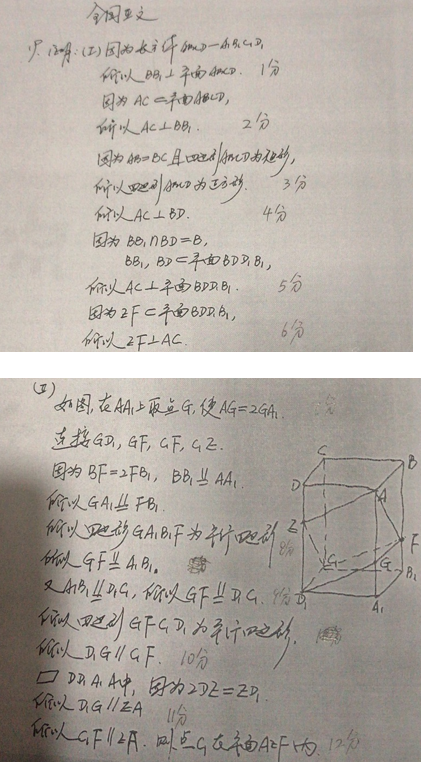 全国亚文
证明:(I)因为长方体ABCD-A₁B₁C₁D₁
所以BB₁⊥平面ABCD. 1分
因为AC⊂平面ABCD,
所以AC⊥BB₁. 2分
因为AB=BC且四边形ABCD为矩形,
所以四边形ABCD为正方形. 3分
所以AC⊥BD. 4分
因为BB₁∩BD=B,
BB₁, BD⊂平面BDD₁B₁,
所以AC⊥平面BDD₁B₁. 5分
因为EF⊂平面BDD₁B₁,
所以EF⊥AC. 6分
(Ⅱ)
如图,在AA₁上取点G,使AG=2GA₁.
连接GD₁, GF, C₁F, C₁E.
因为BF=2FB₁, BB₁∥=AA₁.
所以GA₁∥=FB₁.
所以四边形GA₁B₁F为平行四边形 8分
所以GF∥=A₁B₁.
又A₁B₁∥=D₁C₁,所以GF∥=D₁C₁. 9分
所以四边形GFC₁D₁为平行四边形.
所以D₁G∥C₁F. 10分
▭DD₁A₁A中,因为2DE=ED₁
所以D₁G∥EA 11分
所以C₁F∥EA. 则点C₁在平面AEF内. 12分
C
B
D
A
E
F
C₁
G
B₁
D₁
A₁